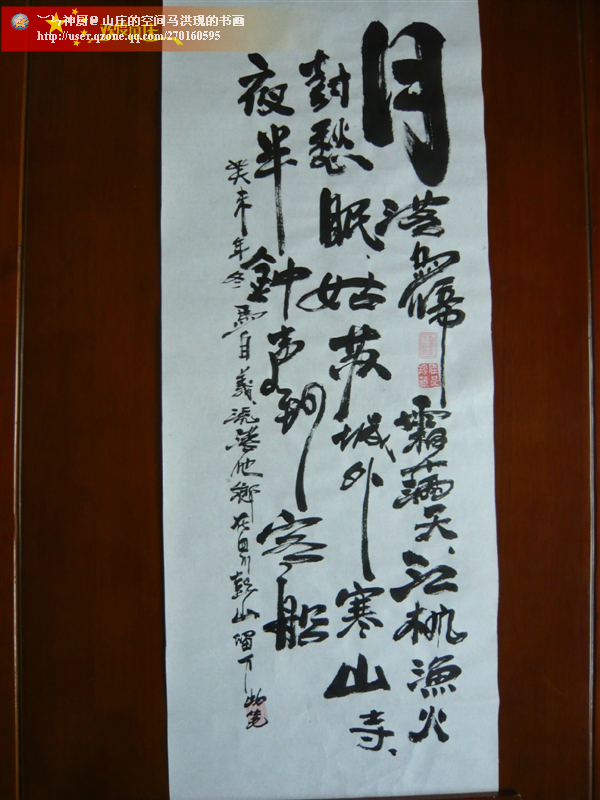 神厨@山庄的空间马洪现的书画
http://user.qzone.qq.com/270160595
欢度国庆
月落烏啼霜满天、江枫漁火
對愁眠、姑苏城外寒山寺、
夜半鐘声到客船
癸未年冬馬自義流落他鄉在四川彭山留下幼笔